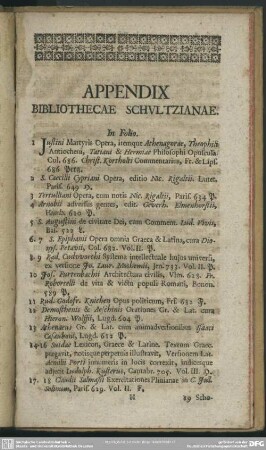 APPENDIX
BIBLIOTHECAE SCHVLTZIANAE.
In Folio.
1 Justini Martyris Opera, itemque Athenagorae, Theophili
Antiocheni, Tatiani & Hermiae Philosophi Opuscula
Col. 686. Christ. Kortholti Commentarius, Fr. & Lips.
686 Perg.
2 S. Caecilii Cypriani Opera, editio Nic. Rigaltii. Lutet.
Paris. 649 D.
3 Tertulliani Opera, cum notis Nic. Rigaltii, Paris. 634 P.
4 Arnobii adversus gentes, edits Geverh. Elmenhorstii,
Hamb. 610 P.
5 S. Augustinus de civitate Dei, cum Comment. Lud. Vivis,
Bas. 522 L.
6. 7 S. Epiphanii Opera omnia Graeca & Latina, cum Dio-
nys. Petavii, Col. 682. Vol. II. P.
8. 9 Rad. Cudworthi Systema intellectuale hujus univerſi,
ex versione Jo. Laur. Moshemii, Jen. 733. Vol. II. P.
10 Jos. Furtenbachii Architectura civilis, Vlm. 628. Fr.
Robortelli de vita & victu populi Romani, Bonon.
559 P.
11 Rud. Godofr. Knichen Opus politicum, Frf. 682 F.
12 Demosthenis & Aeschinis Orationes Gr. & Lat. cura
Hieron. Wolfii, Lugd. 604 P.
13 Athenaeus Gr. & Lat. cum animadversionibus Isaaci
Casauboni, Lugd. 612 P.
14-16 Suidae Lexicon, Graece & Latine. Textum Graec.
purgavit, notisque perpetuis illustravit, Versionem Lat.
Aemilii Porti innumeris in locis correxit, indicesque
adjecit Ludolph. Kusterus, Cantabr. 705. Vol. III. D.
17. 18 Claudii Salmasii Exercitationes Plinianae in C. Jul.
Solinum, Paris. 629. Vol. II. F.
H
19 Scho-